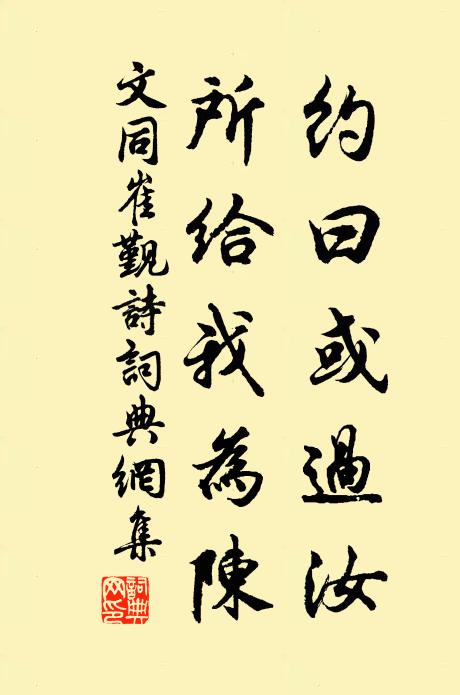 約曰或過汝
所給我為陳
文同崔觐詩詞典網集
詞典網印